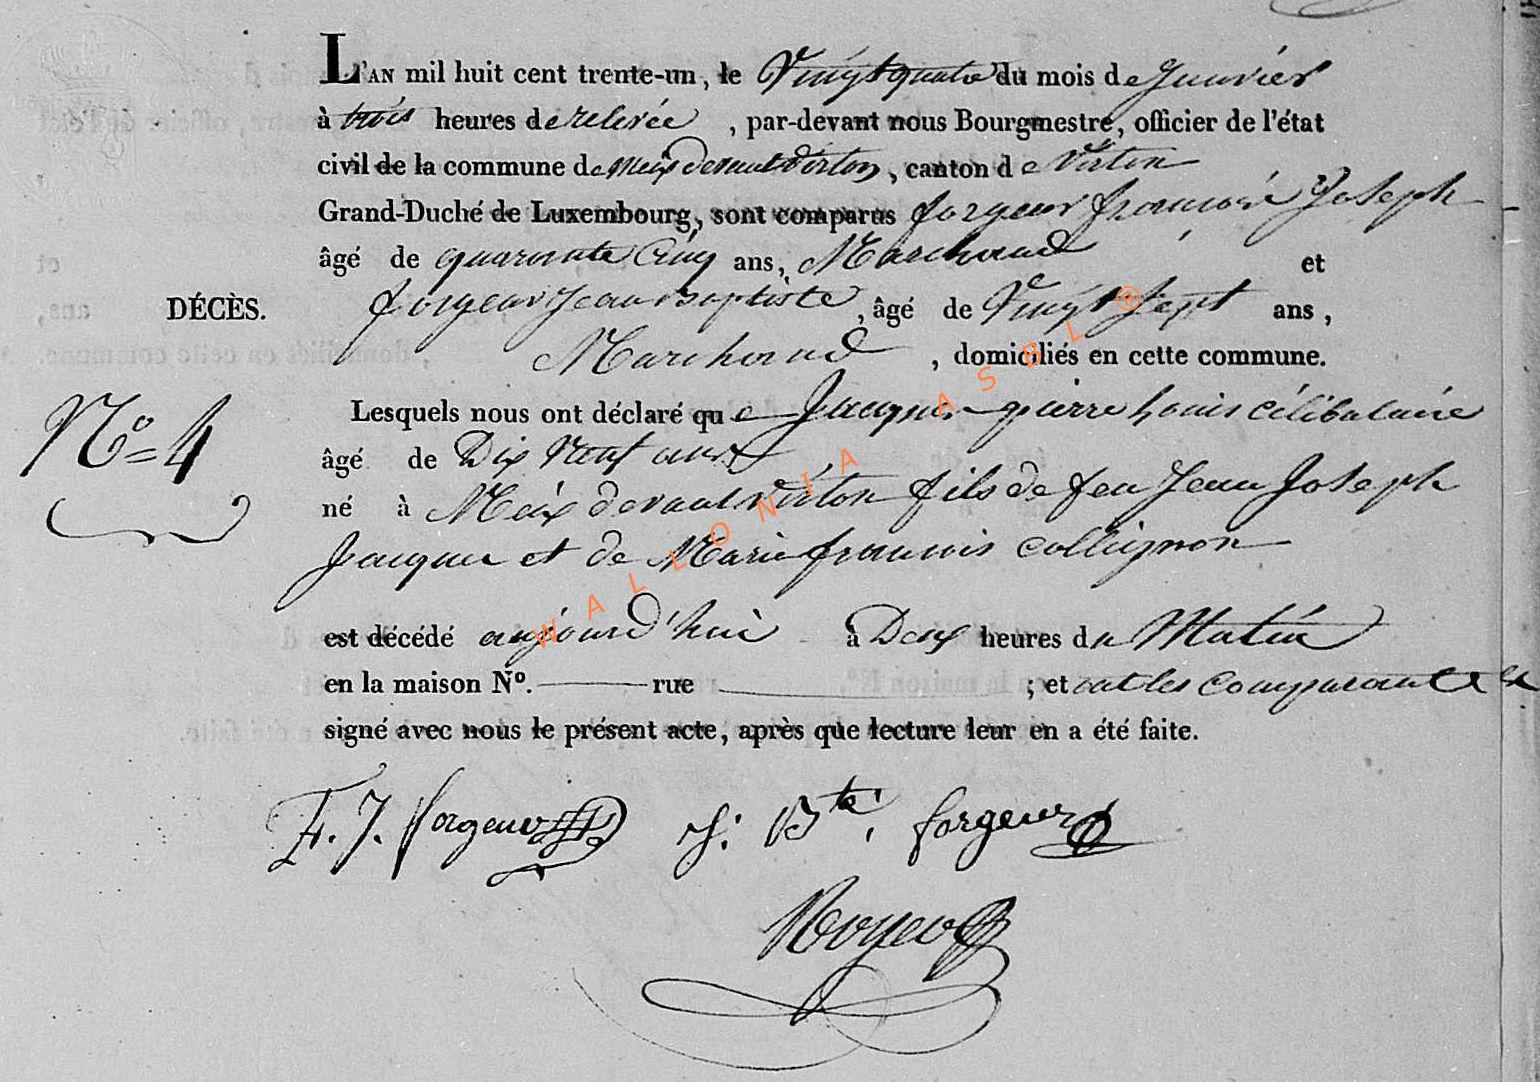 L'AN mil huit cent trente-un, le Vingt quatre du mois de Janvier
à trois heures de relevée, par-devant nous Bourgmestre, officier de l'état
civil de la commune de Meix devant Virton, canton de Virton
Grand-Duché de Luxembourg, sont comparus forgeur francois Joseph
âgé de quarante Cinq ans, Marchand et
DÉCÈS. forgeur Jean Baptiste, âgé de Vingt Sept ans,
Marchand, domiciliés en cette commune.
Nº = 4
Lesquels nous ont déclaré que Jacques pierre Louis célibataire
âgé de Dix Neuf ans
né à Meix devant Virton fils de feu Jean Joseph
Jacques et de Marie francois collignon
est décédé aujourd'hui à Deux heures du Matin
en la maison Nº. rue ; et ont les comparants
signé avec nous le présent acte, après que lecture leur en a été faite.
F. J. forgeur J: Bte: forgeur
Royer
WALLONIA ASBL ®